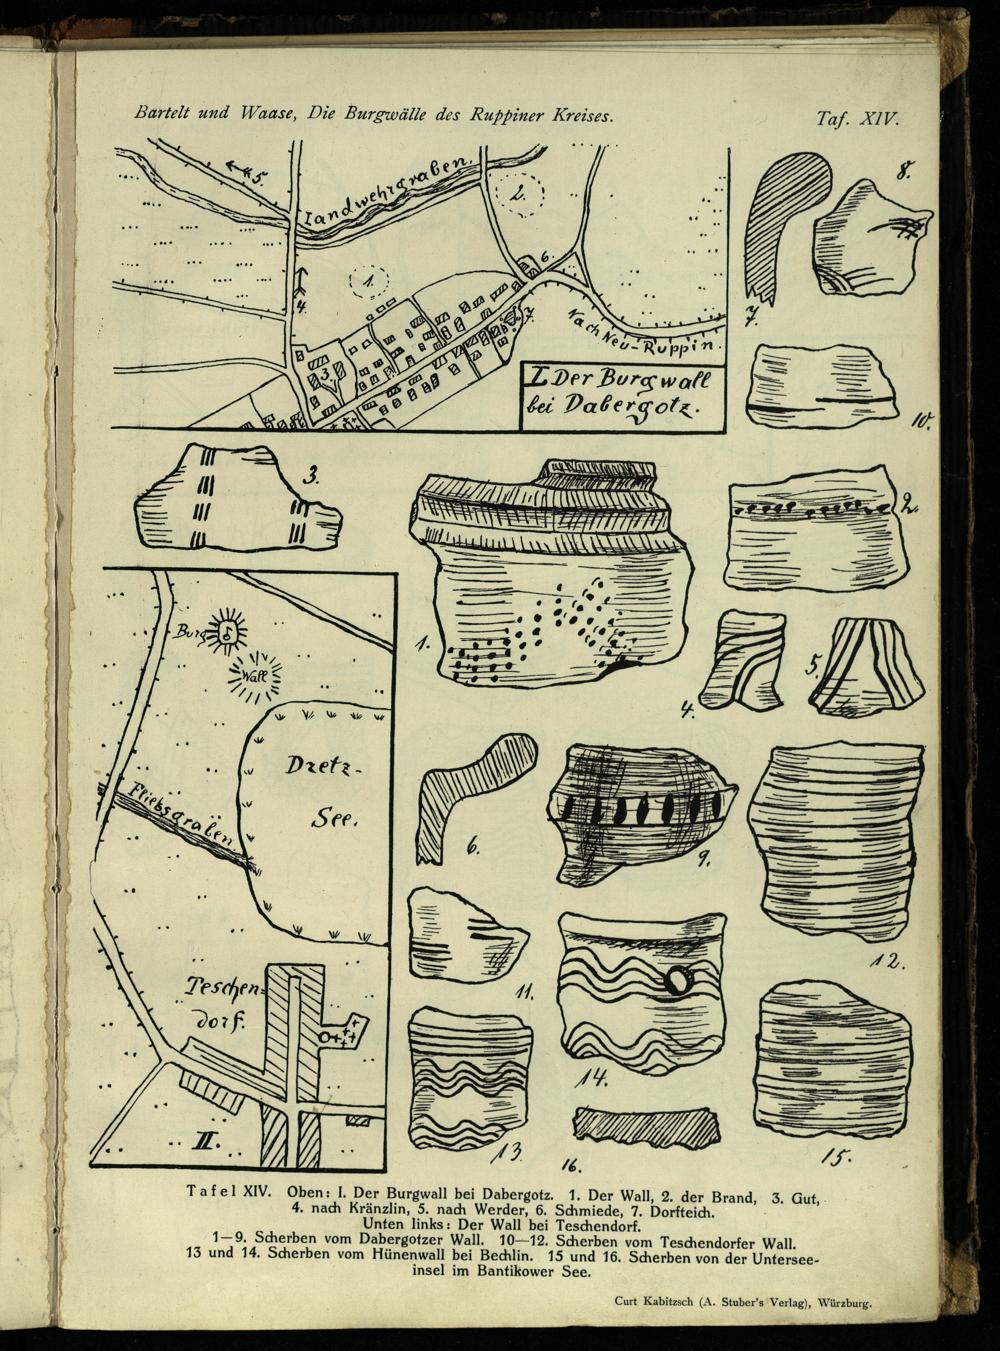 Bartelt und Waase, Die Burgwälle des Ruppiner Kreises.
Taf. XIV.
5.
Landwehrgraben.
2.
1.
4.
6.
3.
7.
Nach Neu-Ruppin.
I. Der Burgwall
bei Dabergotz.
8.
7.
10.
3.
1.
2.
4.
5.
Burg
Wall
Dretz-
See.
Fließgraben.
Teschen-
dorf.
II.
6.
9.
12.
11.
14.
13.
16.
15.
Tafel XIV. Oben: I. Der Burgwall bei Dabergotz. 1. Der Wall, 2. der Brand, 3. Gut,
4. nach Kränzlin, 5. nach Werder, 6. Schmiede, 7. Dorfteich.
Unten links: Der Wall bei Teschendorf.
1—9. Scherben vom Dabergotzer Wall. 10—12. Scherben vom Teschendorfer Wall.
13 und 14. Scherben vom Hünenwall bei Bechlin. 15 und 16. Scherben von der Untersee-
insel im Bantikower See.
Curt Kabitzsch (A. Stuber's Verlag), Würzburg.